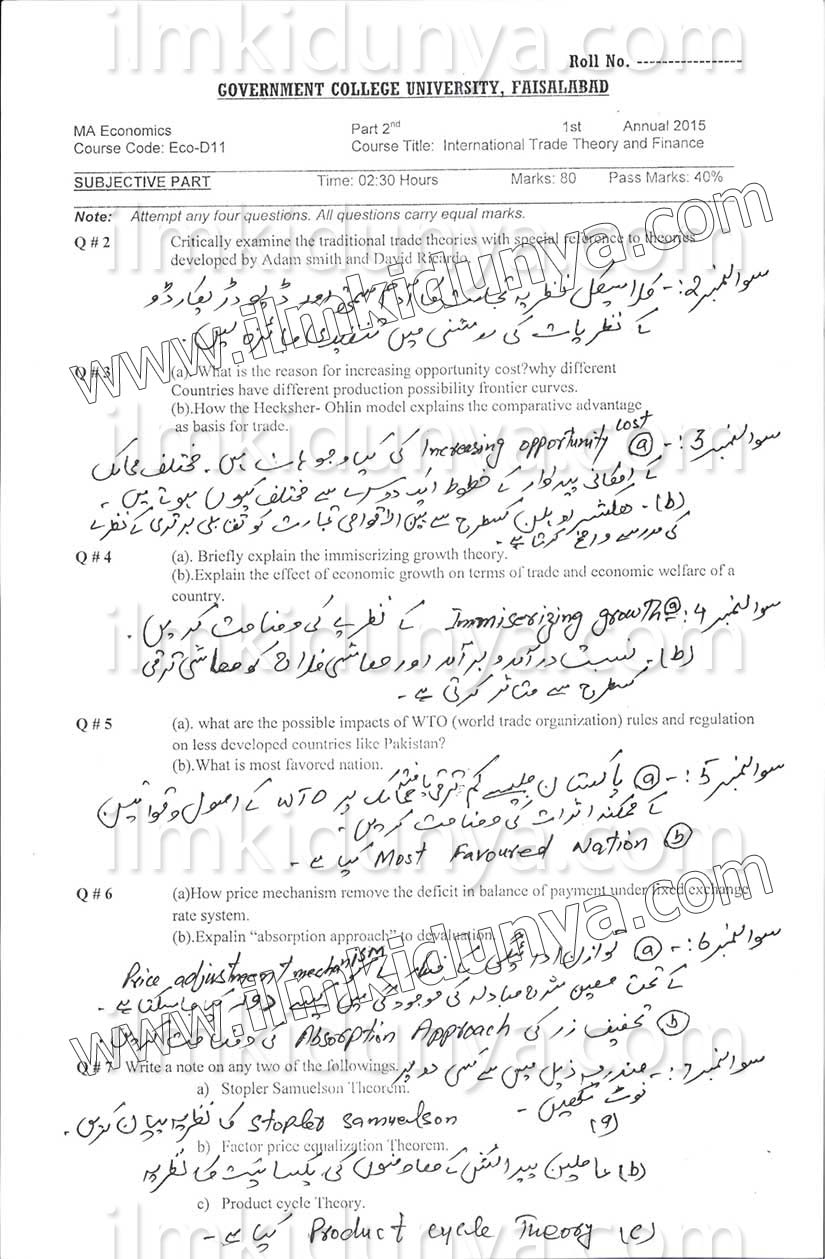 ilmkidunya.com
Roll No. -----------------
GOVERNMENT COLLEGE UNIVERSITY, FAISALABAD
MA Economics Part 2nd 1st Annual 2015
Course Code: Eco-D11 Course Title: International Trade Theory and Finance
SUBJECTIVE PART Time: 02:30 Hours Marks: 80 Pass Marks: 40%
Note: Attempt any four questions. All questions carry equal marks.
Q # 2 Critically examine the traditional trade theories with special reference to theories
developed by Adam smith and David Ricardo.
سوالنمبر 2:- کلاسیکل نظریہ تجارت کا آدم سمتھ اور ڈیوڈ ریکارڈو
کے نظریات کی روشنی میں تنقیدی جائزہ لیں.
www.ilmkidunya.com
Q # 3 (a). What is the reason for increasing opportunity cost?why different
Countries have different production possibility frontier curves.
(b).How the Hecksher- Ohlin model explains the comparative advantage
as basis for trade.
سوالنمبر 3:- (a) Increasing opportunity cost کی کیا وجوہات ہیں. مختلف ممالک
کے امکانی پیداوار کے خطوط ایک دوسرے سے مختلف کیوں ہوتے ہیں.
(b). ھیکشر اوہلن کسطرح سے بین الاقوامی تجارت کو تقابلی برتری کے نظریے
کی مدد سے واضح کرتا ہے.
Q # 4 (a). Briefly explain the immiserizing growth theory.
(b).Explain the effect of economic growth on terms of trade and economic welfare of a
country.
سوالنمبر 4: (a) Immiserizing growth کے نظریے کی وضاحت کریں.
(b). نسبت درآمد و برآمد اور معاشی فلاح کو معاشی ترقی
کسطرح سے متاثر کرتی ہے.
Q # 5 (a). what are the possible impacts of WTO (world trade organization) rules and regulation
on less developed countries like Pakistan?
(b).What is most favored nation.
سوالنمبر 5:- (a) پاکستان جیسے کم ترقی یافتہ ممالک پر WTO کے اصول و قوانین
کے ممکنہ اثرات کی وضاحت کریں.
(b) Most Favoured Nation کیا ہے.
Q # 6 (a)How price mechanism remove the deficit in balance of payment under fixed exchange
rate system.
(b).Expalin “absorption approach” to devaluation.
سوالنمبر 6:- (a) توازن ادائیگی کے خسارے کو Price adjustment mechanism
کے تحت معین شرح مبادلہ کی موجودگی میں کیسے دور کیا جاسکتا ہے.
(b) تخفیف زر کی Absorption Approach کی وضاحت کریں.
www.ilmkidunya.com
Q # 7 Write a note on any two of the followings.
سوالنمبر 7:- مندرجہ ذیل میں سے کسی دو پر
نوٹ لکھیں.
a) Stopler Samuelson Theorem.
(a) Stopler Samuelson کا نظریہ بیان کریں.
b) Factor price equalization Theorem.
(b) عاملین پیدائش کے معاوضوں کی یکسانیت کا نظریہ
c) Product cycle Theory.
(c) Product cycle Theory کیا ہے.